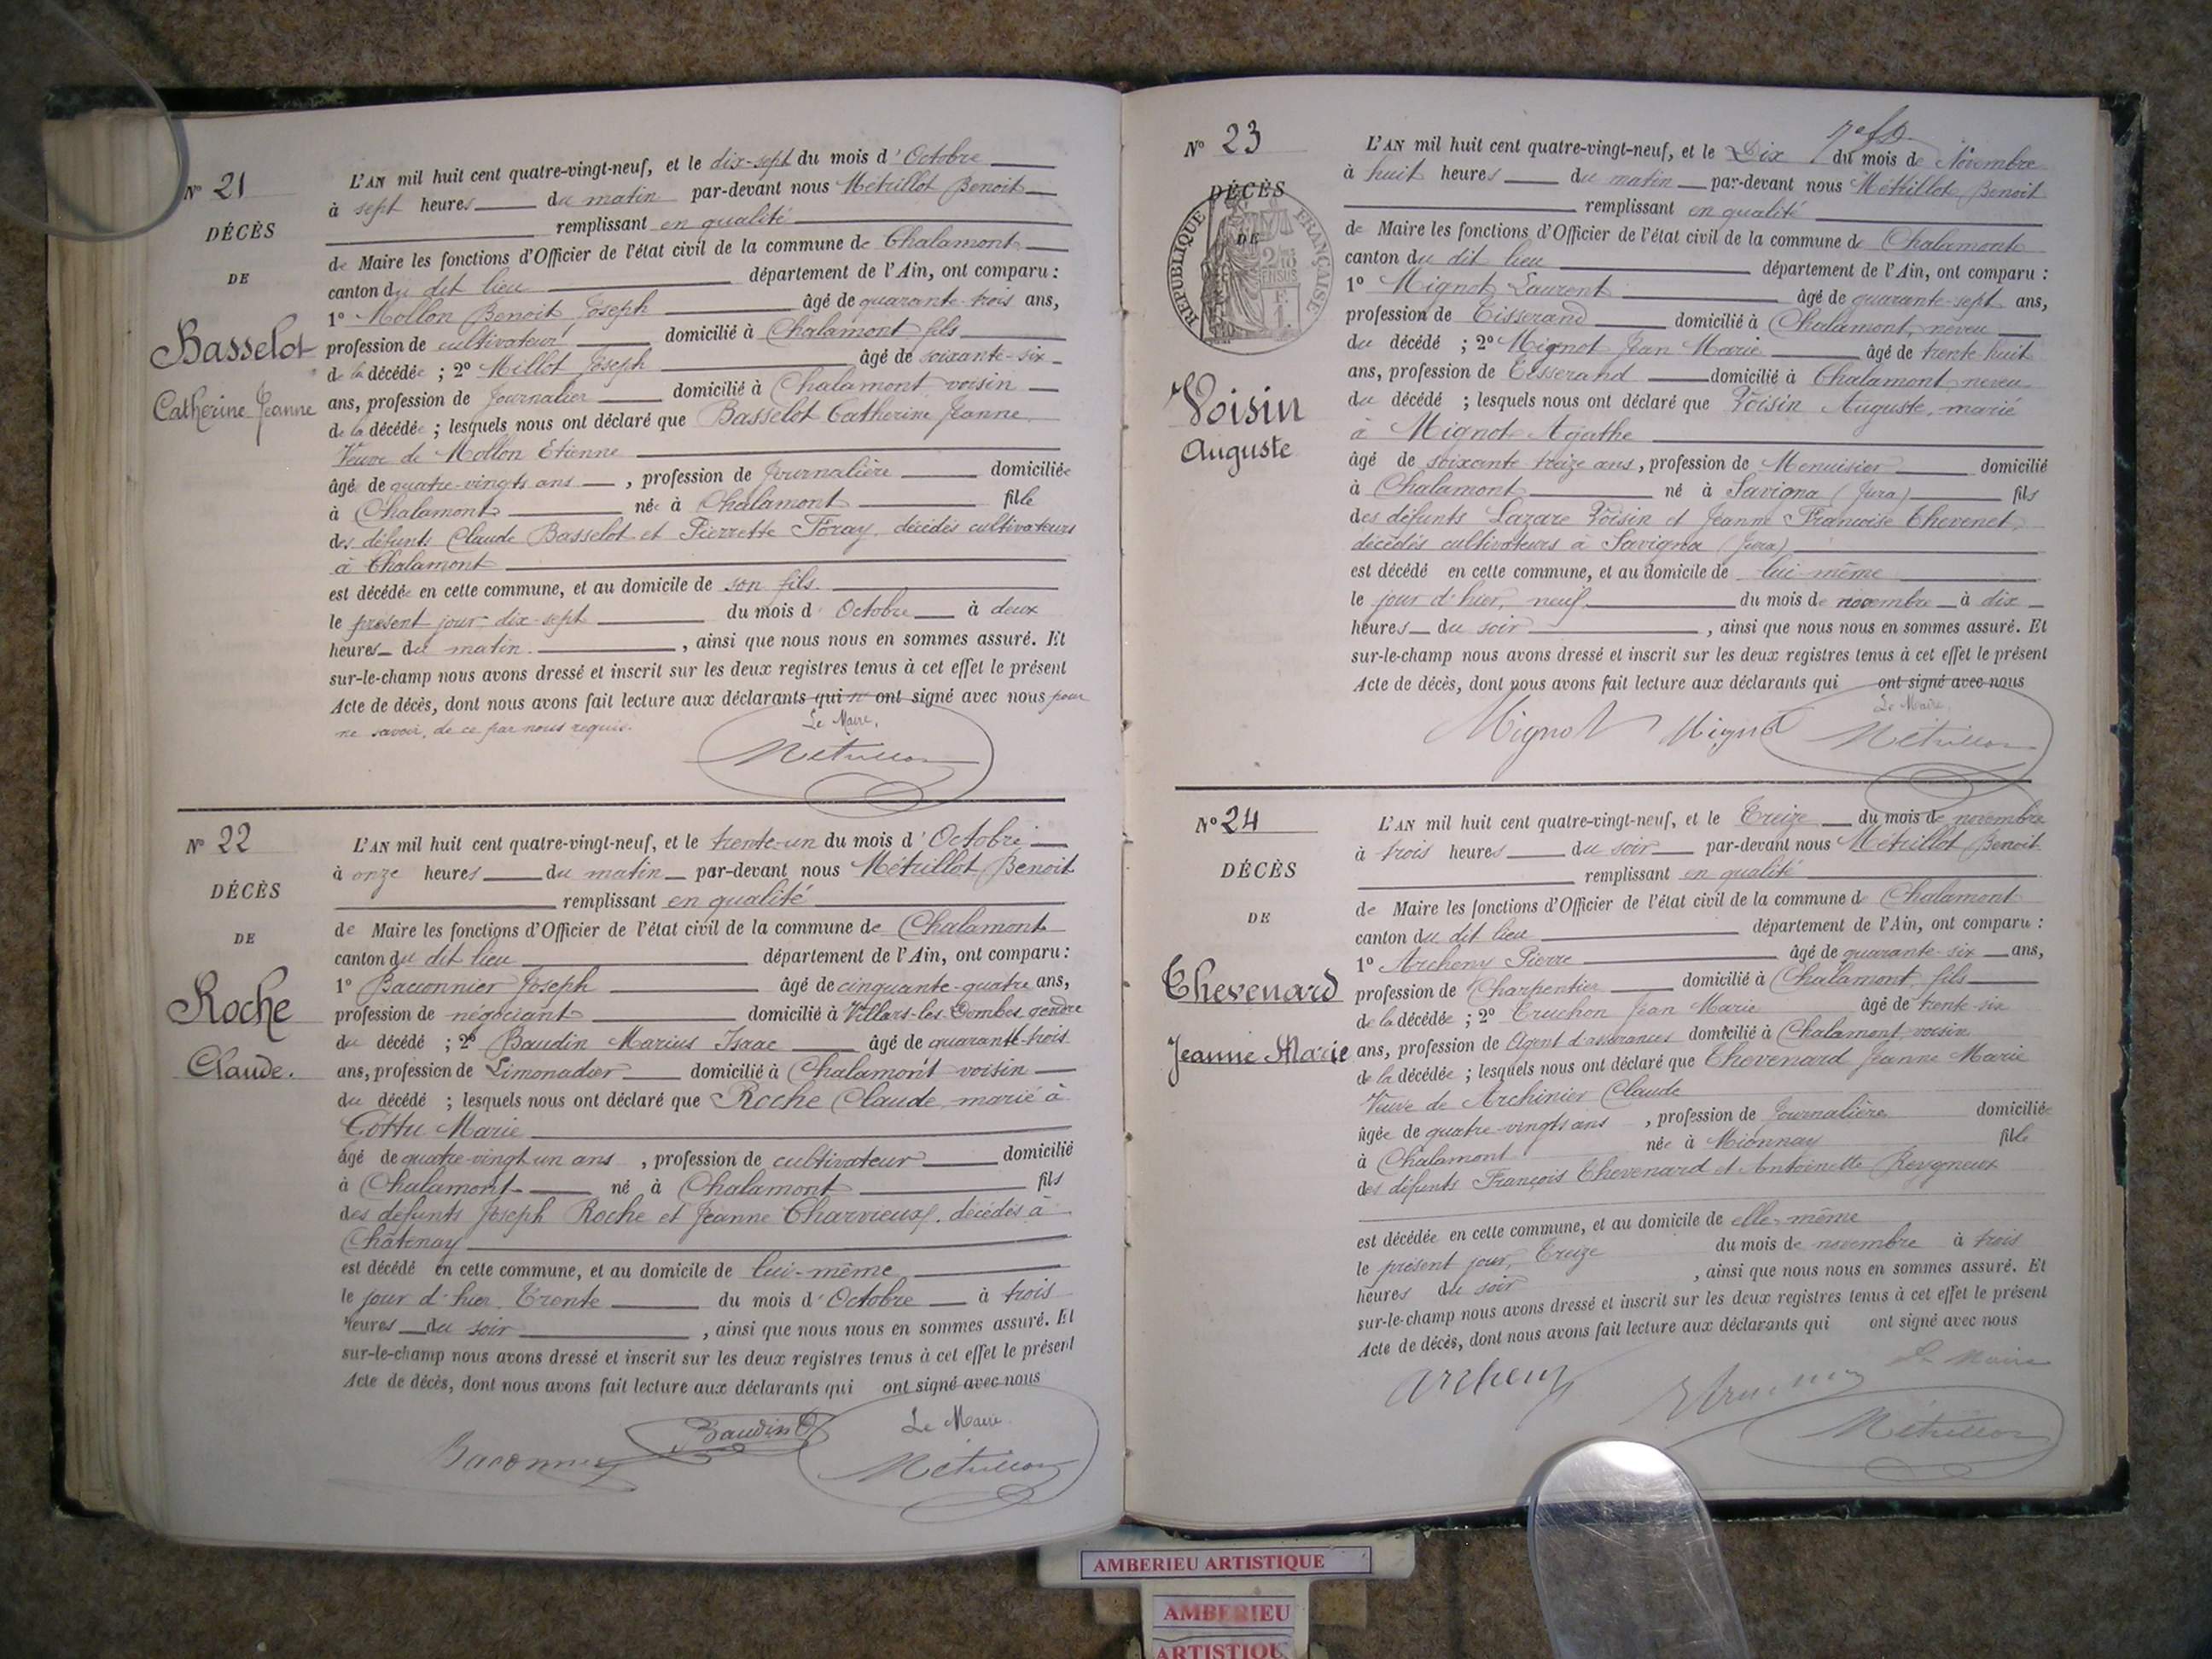 N° 21
DÉCÈS
DE
Basselot
Catherine Jeanne
L'AN mil huit cent quatre-vingt-neuf, et le dix-sept du mois d'Octobre
à sept heures du matin par-devant nous Métrillot Benoit
remplissant en qualité
de Maire les fonctions d'Officier de l'état civil de la commune de Chalamont
canton du dit lieu département de l'Ain, ont comparu :
1° Mollon Benoit Joseph âgé de quarante-trois ans,
profession de cultivateur domicilié à Chalamont fils
de la décédée ; 2° Millot Joseph âgé de soixante-six
ans, profession de Journalier domicilié à Chalamont voisin
de la décédée ; lesquels nous ont déclaré que Basselot Catherine Jeanne
Veuve de Mollon Etienne
âgée de quatre-vingts ans , profession de Journalière domiciliée
à Chalamont née à Chalamont fille
des défunts Claude Basselot et Pierrette Foray, décédés cultivateurs
à Chalamont
est décédée en cette commune, et au domicile de son fils.
le présent jour dix-sept du mois d'Octobre à deux
heures du matin. , ainsi que nous nous en sommes assuré. Et
sur-le-champ nous avons dressé et inscrit sur les deux registres tenus à cet effet le présent
Acte de décès, dont nous avons fait lecture aux déclarants qui n'ont signé avec nous pour
ne savoir, de ce par nous requis.
Le Maire,
Métrillot
N° 22
DÉCÈS
DE
Roche
Claude.
L'AN mil huit cent quatre-vingt-neuf, et le trente-un du mois d'Octobre
à onze heures du matin par-devant nous Métrillot Benoit
remplissant en qualité
de Maire les fonctions d'Officier de l'état civil de la commune de Chalamont
canton du dit lieu département de l'Ain, ont comparu :
1° Baconnier Joseph âgé de cinquante-quatre ans,
profession de négociant domicilié à Villars-les-Dombes gendre
du décédé ; 2° Baudin Marius Isaac âgé de quarante-trois
ans, profession de Limonadier domicilié à Chalamont voisin
du décédé ; lesquels nous ont déclaré que Roche Claude, marié à
Cottu Marie
âgé de quatre-vingt un ans , profession de cultivateur domicilié
à Chalamont né à Chalamont fils
des défunts Joseph Roche et Jeanne Charvieux, décédés à
Châtenay
est décédé en cette commune, et au domicile de lui-même
le jour d'hier, Trente du mois d'Octobre à trois
heures du soir , ainsi que nous nous en sommes assuré. Et
sur-le-champ nous avons dressé et inscrit sur les deux registres tenus à cet effet le présent
Acte de décès, dont nous avons fait lecture aux déclarants qui ont signé avec nous
Baconnier Baudin Le Maire
Métrillot
N° 23
DÉCÈS
DE
RÉPUBLIQUE FRANÇAISE
Voisin
Auguste
L'AN mil huit cent quatre-vingt-neuf, et le Dix du mois de Novembre
à huit heures du matin par-devant nous Métrillot Benoit
remplissant en qualité
de Maire les fonctions d'Officier de l'état civil de la commune de Chalamont
canton du dit lieu département de l'Ain, ont comparu :
1° Mignot Laurent âgé de quarante-sept ans,
profession de Tisserand domicilié à Chalamont, neveu
du décédé ; 2° Mignot Jean Marie âgé de trente huit
ans, profession de Tisserand domicilié à Chalamont neveu
du décédé ; lesquels nous ont déclaré que Voisin Auguste, marié
à Mignot Agathe
âgé de soixante treize ans, profession de Menuisier domicilié
à Chalamont né à Savigna (Jura) fils
des défunts Lazare Voisin et Jeanne Françoise Thevenet,
décédés cultivateurs à Savigna (Jura)
est décédé en cette commune, et au domicile de lui-même
le jour d'hier, neuf du mois de novembre à dix
heures du soir , ainsi que nous nous en sommes assuré. Et
sur-le-champ nous avons dressé et inscrit sur les deux registres tenus à cet effet le présent
Acte de décès, dont nous avons fait lecture aux déclarants qui ont signé avec nous
Le Maire
Mignot Mignot Métrillot
N° 24
DÉCÈS
DE
Thevenard
Jeanne Marie
L'AN mil huit cent quatre-vingt-neuf, et le Treize du mois de novembre
à trois heures du soir par-devant nous Métrillot Benoit
remplissant en qualité
de Maire les fonctions d'Officier de l'état civil de la commune de Chalamont
canton du dit lieu département de l'Ain, ont comparu :
1° Archeny Pierre âgé de quarante-six ans,
profession de Charpentier domicilié à Chalamont, fils
de la décédée ; 2° Truchon Jean Marie âgé de trente six
ans, profession de Agent d'assurances domicilié à Chalamont voisin
de la décédée ; lesquels nous ont déclaré que Thevenard Jeanne Marie
Veuve de Archinier Claude
âgée de quatre-vingts ans , profession de Journalière domiciliée
à Chalamont née à Mionnay fille
des défunts François Thevenard et Antoinette
est décédée en cette commune, et au domicile de elle-même
le présent jour, Treize du mois de novembre à trois
heures du soir , ainsi que nous nous en sommes assuré. Et
sur-le-champ nous avons dressé et inscrit sur les deux registres tenus à cet effet le présent
Acte de décès, dont nous avons fait lecture aux déclarants qui ont signé avec nous
Le Maire
Archeny Métrillot
AMBERIEU ARTISTIQUE
AMBERIEU
ARTISTIQUE